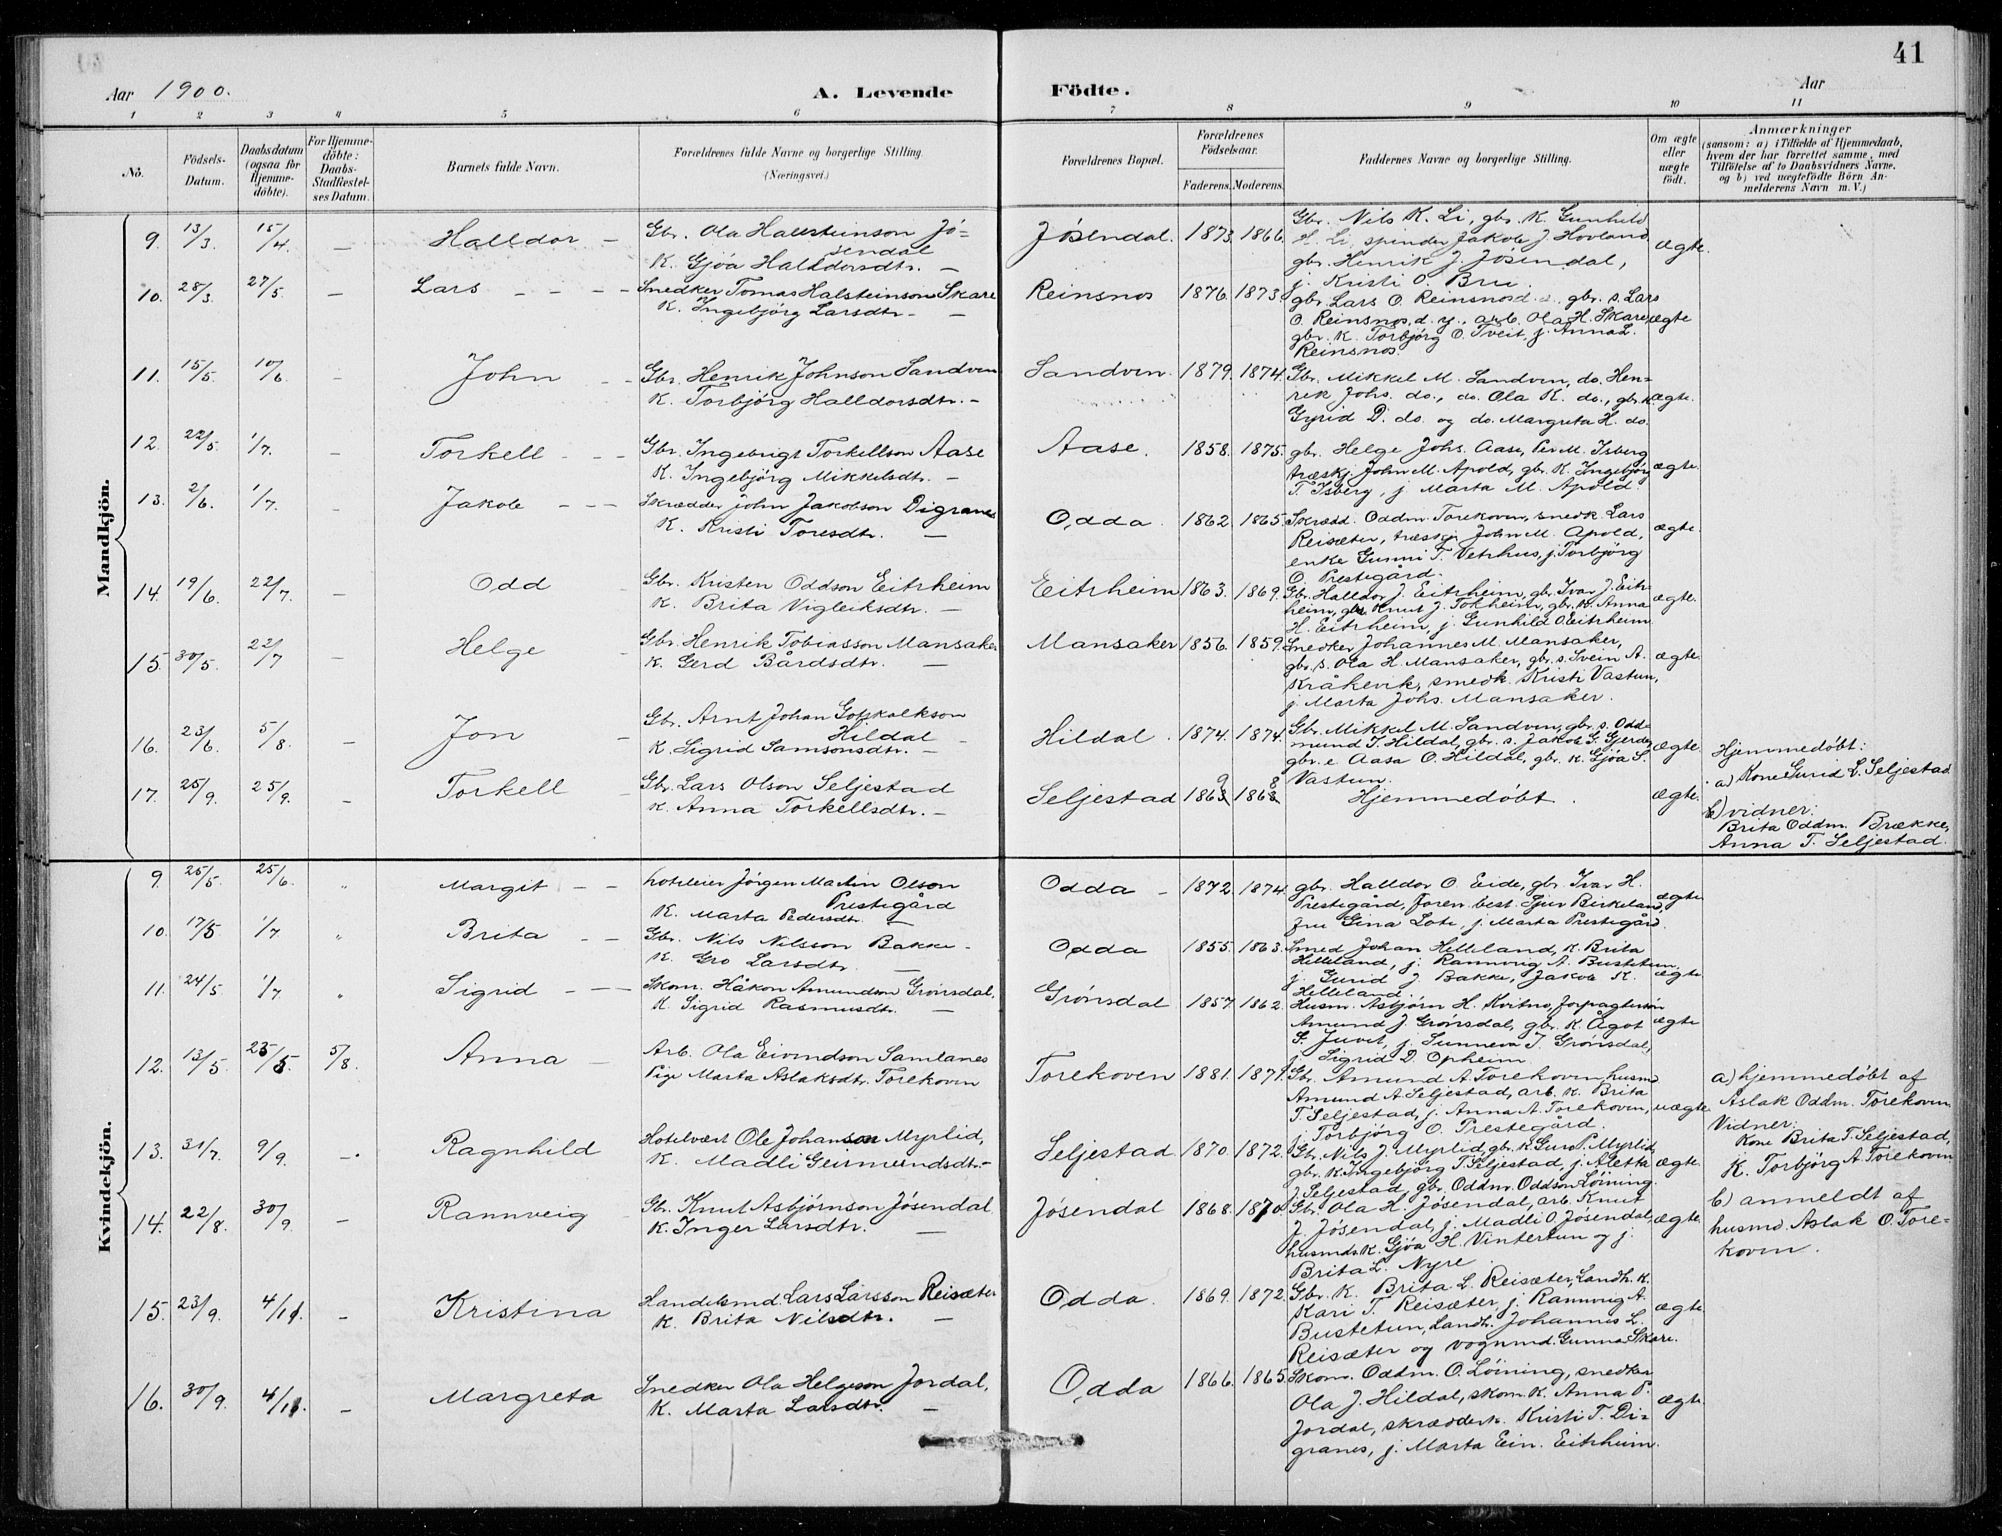 41
Aar 1900.
A. Levende Födte.
Aar
1 2 3 4 5 6 7 8 9 10 11
No.
Födsels-Datum.
Daabsdatum (ogsaa for Hjemmedöbte).
For Hjemmedöbte: Daabs-Stadfæstelses Datum.
Barnets fulde Navn.
Forældrenes fulde Navne og borgerlige Stilling.
(Næringsvei.)
Forældrenes Bopæl.
Forældrenes Födselsaar.
Faderens. Moderens.
Faddernes Navne og borgerlige Stilling.
Om ægte eller uægte födt.
Anmærkninger
(saasom: a) i Tilfælde af Hjemmedaab, hvem der har forrettet samme, med Tilföielse af to Daabsvidners Navne, og b) ved uægtefödte Börn Anmelderens Navn m. V.)
Mandkjön.
9. 13/3 15/4 — Halldor — Gbr. Ola Hallsteinson Jösendal
K. Gjöa Halldorsdtr. —
Jösendal. 1873. 1866.
Gbr. Nils K. Li, gbr. K. Gunhild
H. Li, spinder Jakob J. Hovland,
gbr. Henrik J. Jösendal,
j. Kristi O. Bru.
ægte.
10. 28/3 27/5 — Lars - - - - Snedker Tomas Halsteinson Skare
K. Ingebjörg Larsdtr. —
Reinsnos 1876. 1873.
gbr. Lars O. Reinsnos d. ., gbr. s. Lars
O. Reinsnos, d. y., arb. Ola H. Skare,
gbr. K. Torbjörg O. Tveit, j. Anna L.
Reinsnos.
ægte
11. 15/5. 10/6 - John - - Gbr. Henrik Johnson Sandven
K. Torbjörg Halldorsdtr. -
Sandven. 1879. 1874.
Gbr. Mikkel M. Sandven, do. Hen=
rik Johs. do., do. Ola K. do., gbr. K.
Gyrid D. do. og do. Margreta H. do.
ægte.
12. 22/5. 1/7. - Torkell - - - Gbr. Ingebrigt Torkellson Aase
K. Ingebjörg Mikkelsdtr. -
Aase. 1858. 1875.
gbr. Helge Johs. Aase, Per M. Isberg
træskj. John M. Apold, gbr. K. Ingebjörg
T. Isberg, j. Marta M. Apold.
ægte.
13. 2/6. 1/7. - Jakob - - - Skrædder John Jakobson Digranes
K. Kristi Toresdtr. —
Odda. 1862. 1865.
Skrædd. Oddm. Torekoven, snedk. Lars
Reisæter, træskj. John M. Apold,
enke Gunni T. Vetrhus, j. Torbjörg
O. Prestegård.
ægte.
14. 19/6. 22/7. - Odd Gbr. Kristen Oddson Eitrheim
K. Brita Vigleiksdtr. —
Eitrheim 1863. 1869.
Gbr. Halldor J. Eitrheim, gbr. Ivar J. Eitr=
heim, gbr. Knut J. Tokheim, gbr. K. Anna
H. Eitrheim, j. Gunhild O. Eitrheim
ægte.
15. 30/5. 22/7 - Helge - Gbr. Henrik Tobiasson Mansaker
K. Gerd Bårdsdtr. —
Mansaker 1856. 1859.
Snedker Johannes M. Mansaker,
gbr. s. Ola H. Mansaker, gbr. s. Svein A.
Kråkevik, smedk. Kristi Vastun,
j. Marta Johs. Mansaker.
ægte.
16. 23/6 5/8. - Jon - Gbr. Arnt Johan Gotskalkson
Hildal -
K. Sigrid Samsonsdtr. —
Hildal. 1874. 1874.
Gbr. Mikkel M. Sandven, gbr. s. Odd=
mund T. Hildal, gbr. s. Jakob G. Gjerde,
gbr. e Aasa O. Hildal, gbr. K. Gjöa S.
Vastun.
ægte.
17. 25/9. 25/9. - Torkell - Gbr. Lars Olson Seljestad
K. Anna Torkellsdtr. -
Seljestad 1869. 1868.
Hjemmedøbt.
ægte.
Hjemmedøbt:
a) Kone Gurid L. Seljestad.
b) vidner:
Brita Oddm. Brække,
Anna T. Seljestad.
Kvindekjön.
9. 25/5. 25/6. " Margit - - hoteleier Jörgen Martin Olson
Prestegård
K. Marta Pedersdtr. -
Odda - 1872. 1874.
gbr. Halldor O. Eide, gbr. Ivar H.
Prestegård, Foren. best. Sjur Birkeland,
fru Gina Lote, j. Marta Prestegård.
ægte.
10. 17/5 1/7 " Brita - - Gbr. Nils Nilsson Bakke -
K. Gro Larsdtr. —
Odda 1855. 1863.
Smed Johan Helleland, K. Brita
Helleland, j. Rannveig A. Bustetun,
j. Gurid J. Bakke, Jakob K.
Helleland.
ægte
11. 24/5 1/7 " Sigrid - - - Skom. Håkon Amundson Grönsdal,
K Sigrid Rasmusdtr. —
Grönsdal 1857 1862.
Husm. Asbjörn H. Kvitno, forpagtersön
Amund J. Grönsdal, gbr. K. Ågot
G. Juvet, j. Sunneva T. Grönsdal,
j. Sigrid D. Opheim
ægte
12. 13/5. 25/5. 5/8. Anna - Arb. Ola Eivindson Samlanes
Pige Marta Aslaksdtr. Torekoven
Torekoven 1881. 1871.
Gbr. Amund A. Torekoven, husmd.
Amund A. Seljestad, arb. K. Brita
T. Seljestad, j. Anna A. Torekoven,
j. Torbjörg O. Prestegård.
uægte.
a) hjemmedøbt af
Aslak Oddm. Torekoven.
Vidner:
Kone Brita T. Seljestad,
K. Torbjörg A. Torekoven
b) anmeldt af
husmd. Aslak O. Tore=
koven.
13. 31/7. 9/9. -. Ragnhild Hotelvært Ole Johanson Myrlid,
K. Madli Geirmundsdtr. -
Seljestad 1870. 1872.
Gbr. Nils J. Myrlid, gbr. K. Guro P. Myrlid,
gbr. K. Ingebjörg T. Seljestad, j. Aletta
J. Seljestad, gbr. Oddm. Oddson Löining.
ægte.
14. 22/8. 30/9. - Rannveig - Gbr. Knut Asbjörnson Jösendal
K. Inger Larsdtr. —
Jösendal 1868. 1870.
Gbr. Ola H. Jösendal, arb. Knut
J. Jösendal, j. Madli O. Jösendal,
husmds. K. Gjöa H. Vintertun og j.
Brita L. Nyre.
ægte.
15. 23/9. 4/11. - Kristina Handelsmd. Lars Larsson Reisæter
K. Brita Nilsdtr. —
Odda. 1869. 1872.
Gbr. K. Brita L. Reisæter, Landh. K.
Kari T. Reisæter, j. Rannveig A.
Bustetun, Landh. Johannes L.
Reisæter og vognmd. Gunnar Skare.
ægte.
16. 30/9. 4/11. - Margreta Snedker Ola Helgeson Jordal,
K. Marta Larsdtr. —
Odda 1866. 1865.
Skom. Oddm. O. Löining, snedker
Ola J. Hildal, skom. K. Anna P.
Jordal, skrædderk. Kristi T. Di=
granes, j. Marta Ein. Eitrheim.
ægte.